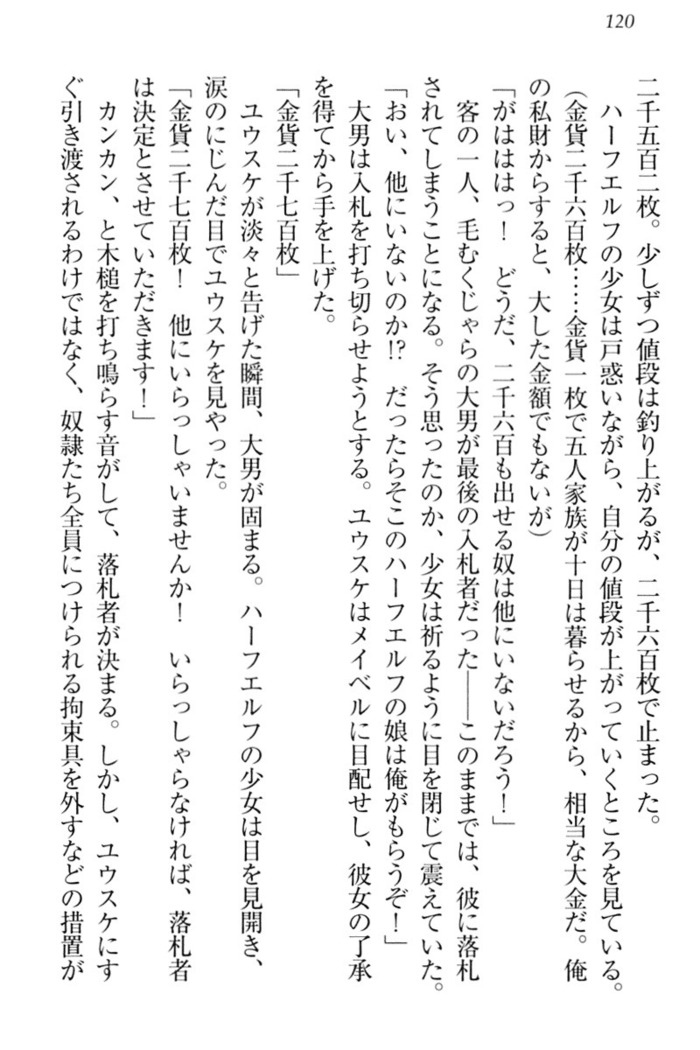 120
二千五百二枚。少しずつ値段は釣り上がるが、二千六百枚で止まった。
ハーフエルフの少女は戸惑いながら、自分の値段が上がっていくところを見ている。
（金貨二千六百枚……金貨一枚で五人家族が十日は暮らせるから、相当な大金だ。俺
の私財からすると、大した金額でもないが）
「がはははっ！　どうだ、二千六百も出せる奴は他にいないだろう！」
客の一人、毛むくじゃらの大男が最後の入札者だった――このままでは、彼に落札
されてしまうことになる。そう思ったのか、少女は祈るように目を閉じて震えていた。
「おい、他にいないのか!?　だったらそこのハーフエルフの娘は俺がもらうぞ！」
大男は入札を打ち切らせようとする。ユウスケはメイベルに目配せし、彼女の了承
を得てから手を上げた。
「金貨二千七百枚」
ユウスケが淡々と告げた瞬間、大男が固まる。ハーフエルフの少女は目を見開き、
涙のにじんだ目でユウスケを見やった。
「金貨二千七百枚！　他にいらっしゃいませんか！　いらっしゃらなければ、落札者
は決定とさせていただきます！」
カンカン、と木槌を打ち鳴らす音がして、落札者が決まる。しかし、ユウスケにす
ぐ引き渡されるわけではなく、奴隷たち全員につけられる拘束具を外すなどの措置が